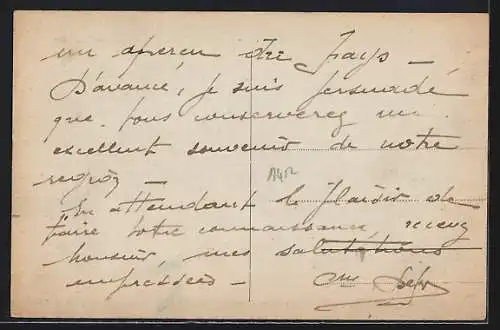 un aperçu du pays –
D'avance, je suis persuadé
que vous conserverez un
excellent souvenir de notre
région –
En attendant le plaisir de
faire votre connaissance, recevez
Monsieur, mes salutations
empressées –